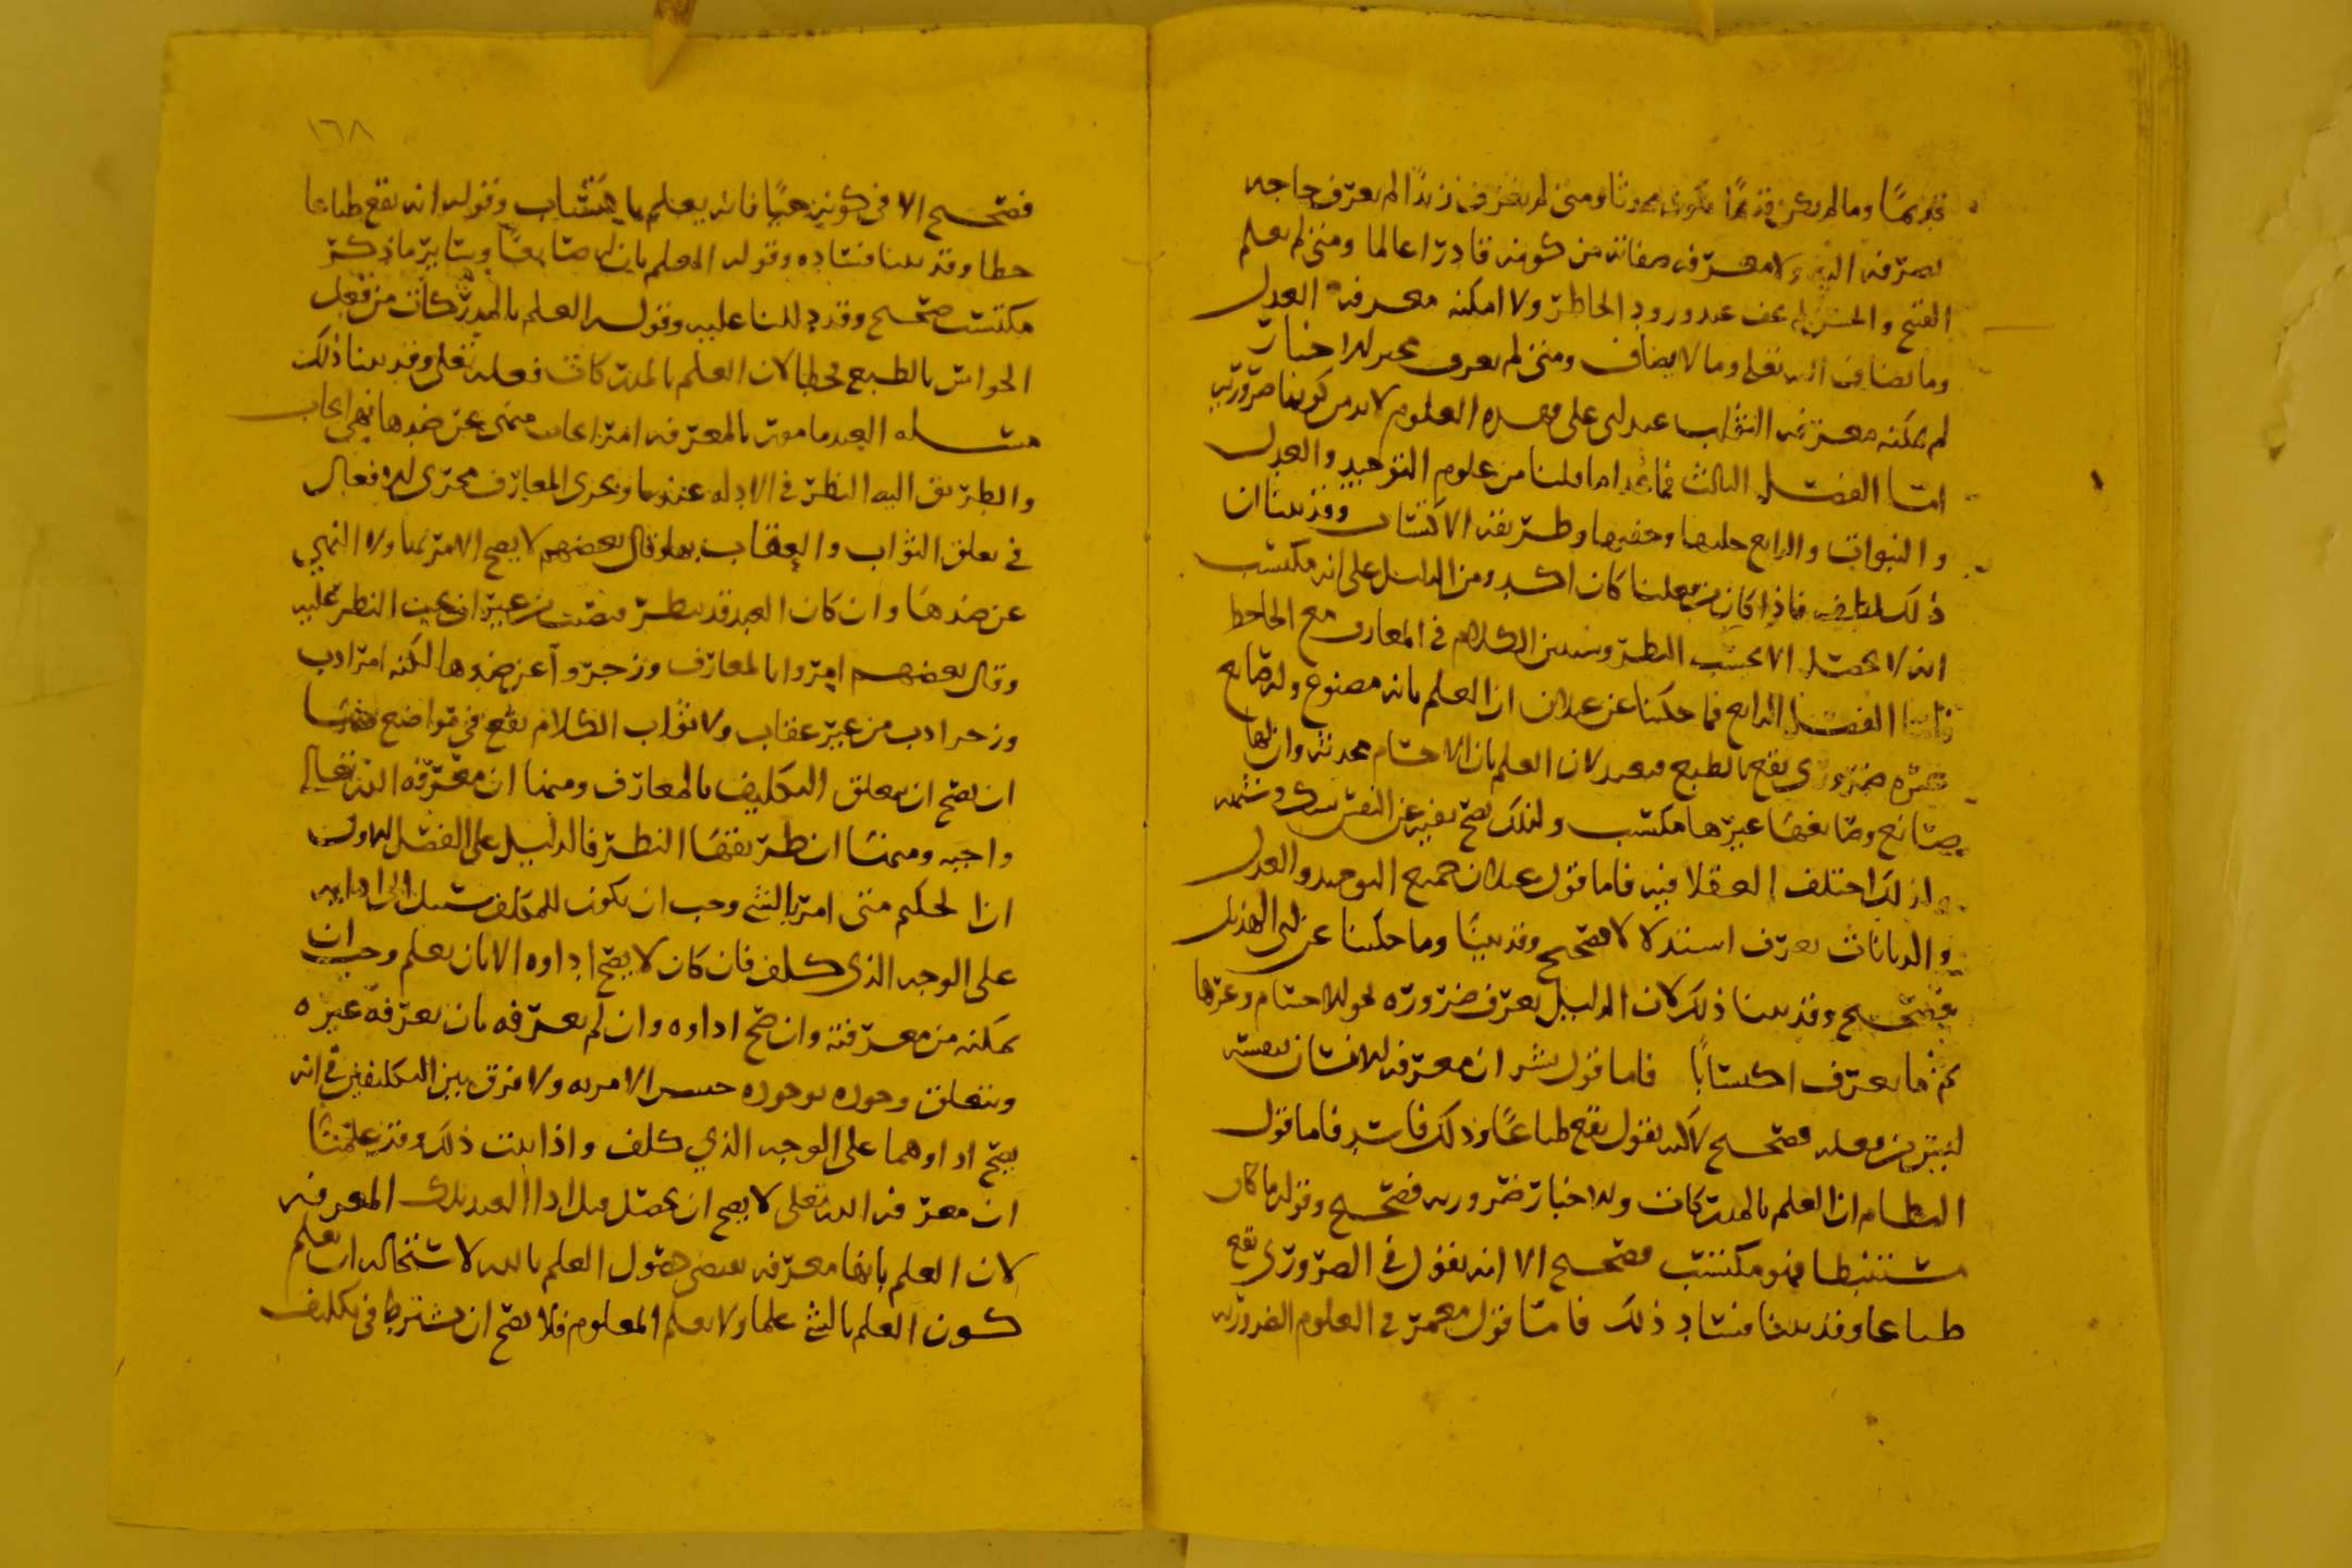 قديمًا وما لم يكن قديمًا يكون محدثا ومتى لم يعرف زيدًا لم يعرف حاجه
تصرفه اليه ولا معرفه صفاته من كونه قادرا عالما ومتى لم يعلم
القبح والحسن لم يخف عند ورود الخاطر ولا امكنه معرفه العدل
وما يضاف الى الله تعالى وما لا يضاف ومتى لم يعرف مخبر الاخبار
لم يمكنه معرفه الثواب عند ابى على فهذه العلوم لابد من كونها ضروريه
اما الفصل الثالث فما عدا ما قلنا من علوم التوحيد والعدل
والنبوات والشرائع جليها وخفيها وطريقه الاكتساب وقد بينا ان
ذلك فاذا كان من فعلنا كان اكد ومن الدليل على انه مكتسب
انه لا يحصل الا بحسب النظر وسنبين الكلام في المعارف مع الجاحظ
فاما الفصل الرابع فما حكينا عن علان ان العلم بانه مصنوع وله صانع
غيره ضروري يقع بالطبع فبعيد لان العلم بان الاجسام محدثه وان لها
صانع وصانعها غيرها مكتسب ولذلك يصح نفيه عن النفس بشك وشبهه
ولذلك اختلف العقلا فيه فاما قول علان جميع التوحيد والعدل
والديانات يعرف استدلالا فصحيح وقد بينا وما حكينا عن ابى الهذيل
فصحيح وقد بينا ذلك لان الدليل يعرف ضروره نحو الاجسام وغيرها
ثم ما يعرف اكتسابًا فاما قول بشر ان معرفه الانسان بنفسه
ليس من فعله فصحيح لكنه يقول يقع طباعًا وذلك فاسد فاما قول
النظام ان العلم بالمدركات والاخبار ضروريه فصحيح وقوله ما كان
مستنبطا فهو مكتسب فصحيح الا انه يقول في الضروري يقع
طباعا وقد بينا فساد ذلك فاما قول معمر في العلوم الضروريه
١٦٨
فصحيح الا في كونه حيًا فانه يعلم باكتساب وقوله انه يقع طباعا
خطا وقد بينا فساده وقوله العلم بان له صانعا وسائر ما ذكر
مكتسب صحيح وقد دللنا عليه وقوله العلم بالمدركات من فعل
الحواس بالطبع فخطا لان العلم بالمدركات فعله تعالى وقد بينا ذلك
مسله العبد مامور بالمعرفه امر ايجاب منهى عن ضدها نهي ايجاب
والطريق اليه النظر في الادله عندنا ويجرى المعارف مجرى الافعال
في تعلق الثواب والعقاب بها وقال بعضهم لا يصح الامر بها ولا النهي
عن ضدها وان كان العبد قد ينظر فيصيب من غير ان يجب النظر عليه
وقال بعضهم امروا بالمعارف وزجروا عن ضدها لكنه امر ادب
وزجر ادب من غير عقاب ولا ثواب الكلام يقع في مواضع منها
ان يصح ان يتعلق التكليف بالمعارف ومنها ان معرفه الله تعالى
واجبه ومنها ان طريقها النظر فالدليل على الفصل الاول
ان الحكيم متى امر بالشي وجب ان يكون للمكلف سبيل الى ادايه
على الوجه الذى كلف فان كان لا يصح اداوه الا بان يعلم وجب ان
يمكنه من معرفته وان صح اداوه وان لم يعرفه بان يعرفه غيره
ويتعلق وجوده بوجوده حسن الامر به ولا فرق بين التكليفين في انه
يصح اداوهما على الوجه الذي كلف واذا ثبت ذلك وقد علمنا
ان معرفه الله تعالى لا يصح ان يحصل قبل ادا العبد تلك المعرفه
لان العلم بانها معرفه يقتضى حصول العلم بالله لاستحاله ان يعلم
كون العلم بالشي علما ولا يعلم المعلوم فلا يصح ان يشترط في تكليف